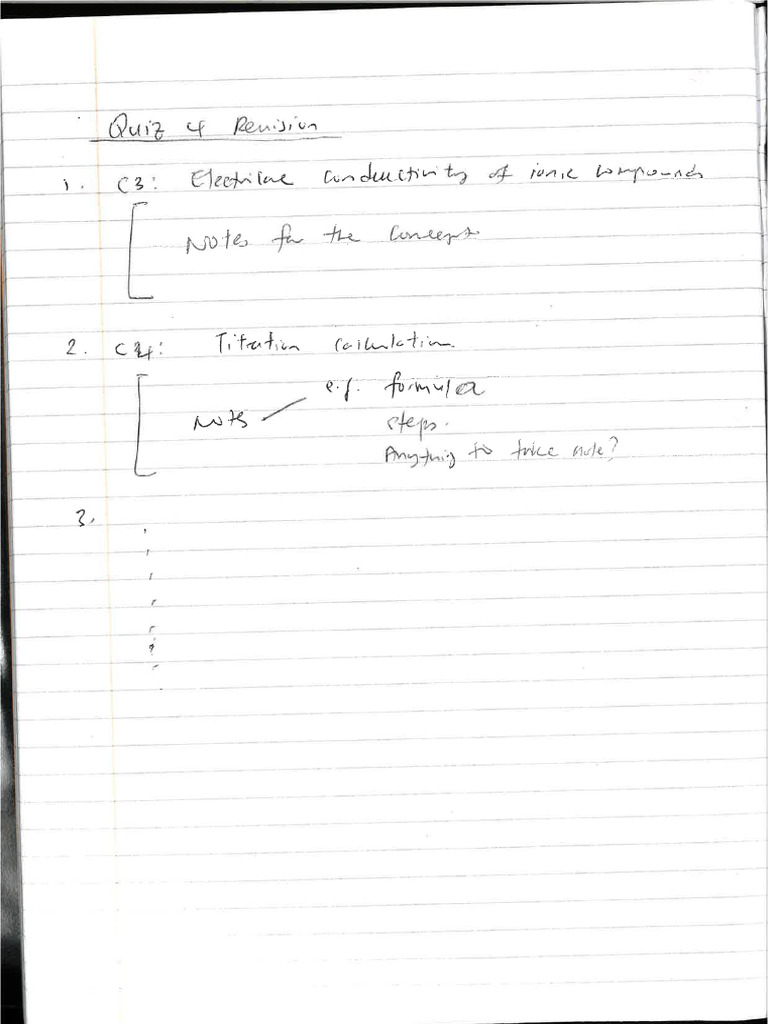 Quiz 4 Revision
1. C3: Electrical conductivity of ionic compounds
Notes for the concept.
2. C4: Titration calculation.
e.g. formula
Notes
steps.
Anything to take note?
3.